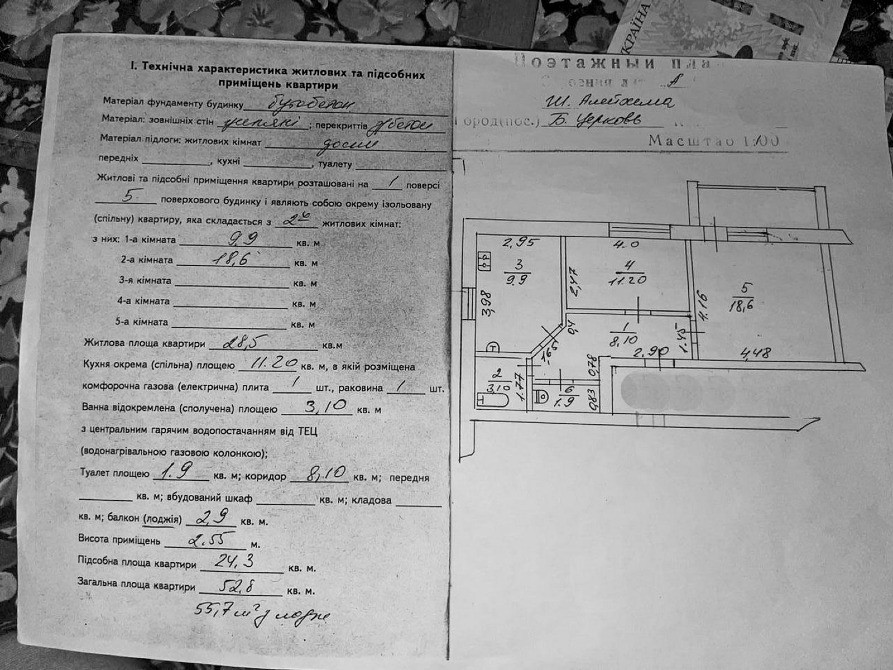 І. Технічна характеристика житлових та підсобних
приміщень квартири
Матеріал фундаменту будинку бутобетон
Матеріал: зовнішніх стін ; перекриттів з/бетон
Матеріал підлоги: житлових кімнат дощ
передніх , кухні , туалету
Житлові та підсобні приміщення квартири розташовані на 1 поверсі
5 поверхового будинку і являють собою окрему ізольовану
(спільну) квартиру, яка складається з 2х житлових кімнат:
з них: 1-а кімната 9.9 кв. м
2-а кімната 18,6 кв. м
3-я кімната кв. м
4-а кімната кв. м
5-а кімната кв. м
Житлова площа квартири 28,5 кв.м
Кухня окрема (спільна) площею 11.20 кв. м, в якій розміщена
комфорочна газова (електрична) плита 1 шт., раковина 1 шт.
Ванна відокремлена (сполучена) площею 3,10 кв. м
з центральним гарячим водопостачанням від ТЕЦ
(водонагрівальною газовою колонкою);
Туалет площею 1.9 кв. м; коридор 8,10 кв. м; передня
кв. м; вбудований шкаф кв. м; кладова
кв. м; балкон (лоджія) 2,9 кв. м.
Висота приміщень 2.55 м.
Підсобна площа квартири 24,3 кв. м.
Загальна площа квартири 52,8 кв. м.
55,7 м² з лодж
Поэтажный пла
А
Ш. Алейхема
Город(пос.) Б. Церковь
Масштаб 1:100
2,95
4.0
3
9.9
4
11.20
5
18,6
3,98
2,47
4.16
0,4
1
8,10
1.45
1.65
2.90
4,48
0,78
2
3,10
1.77
6
1.9
0,83
УКРАЇНА